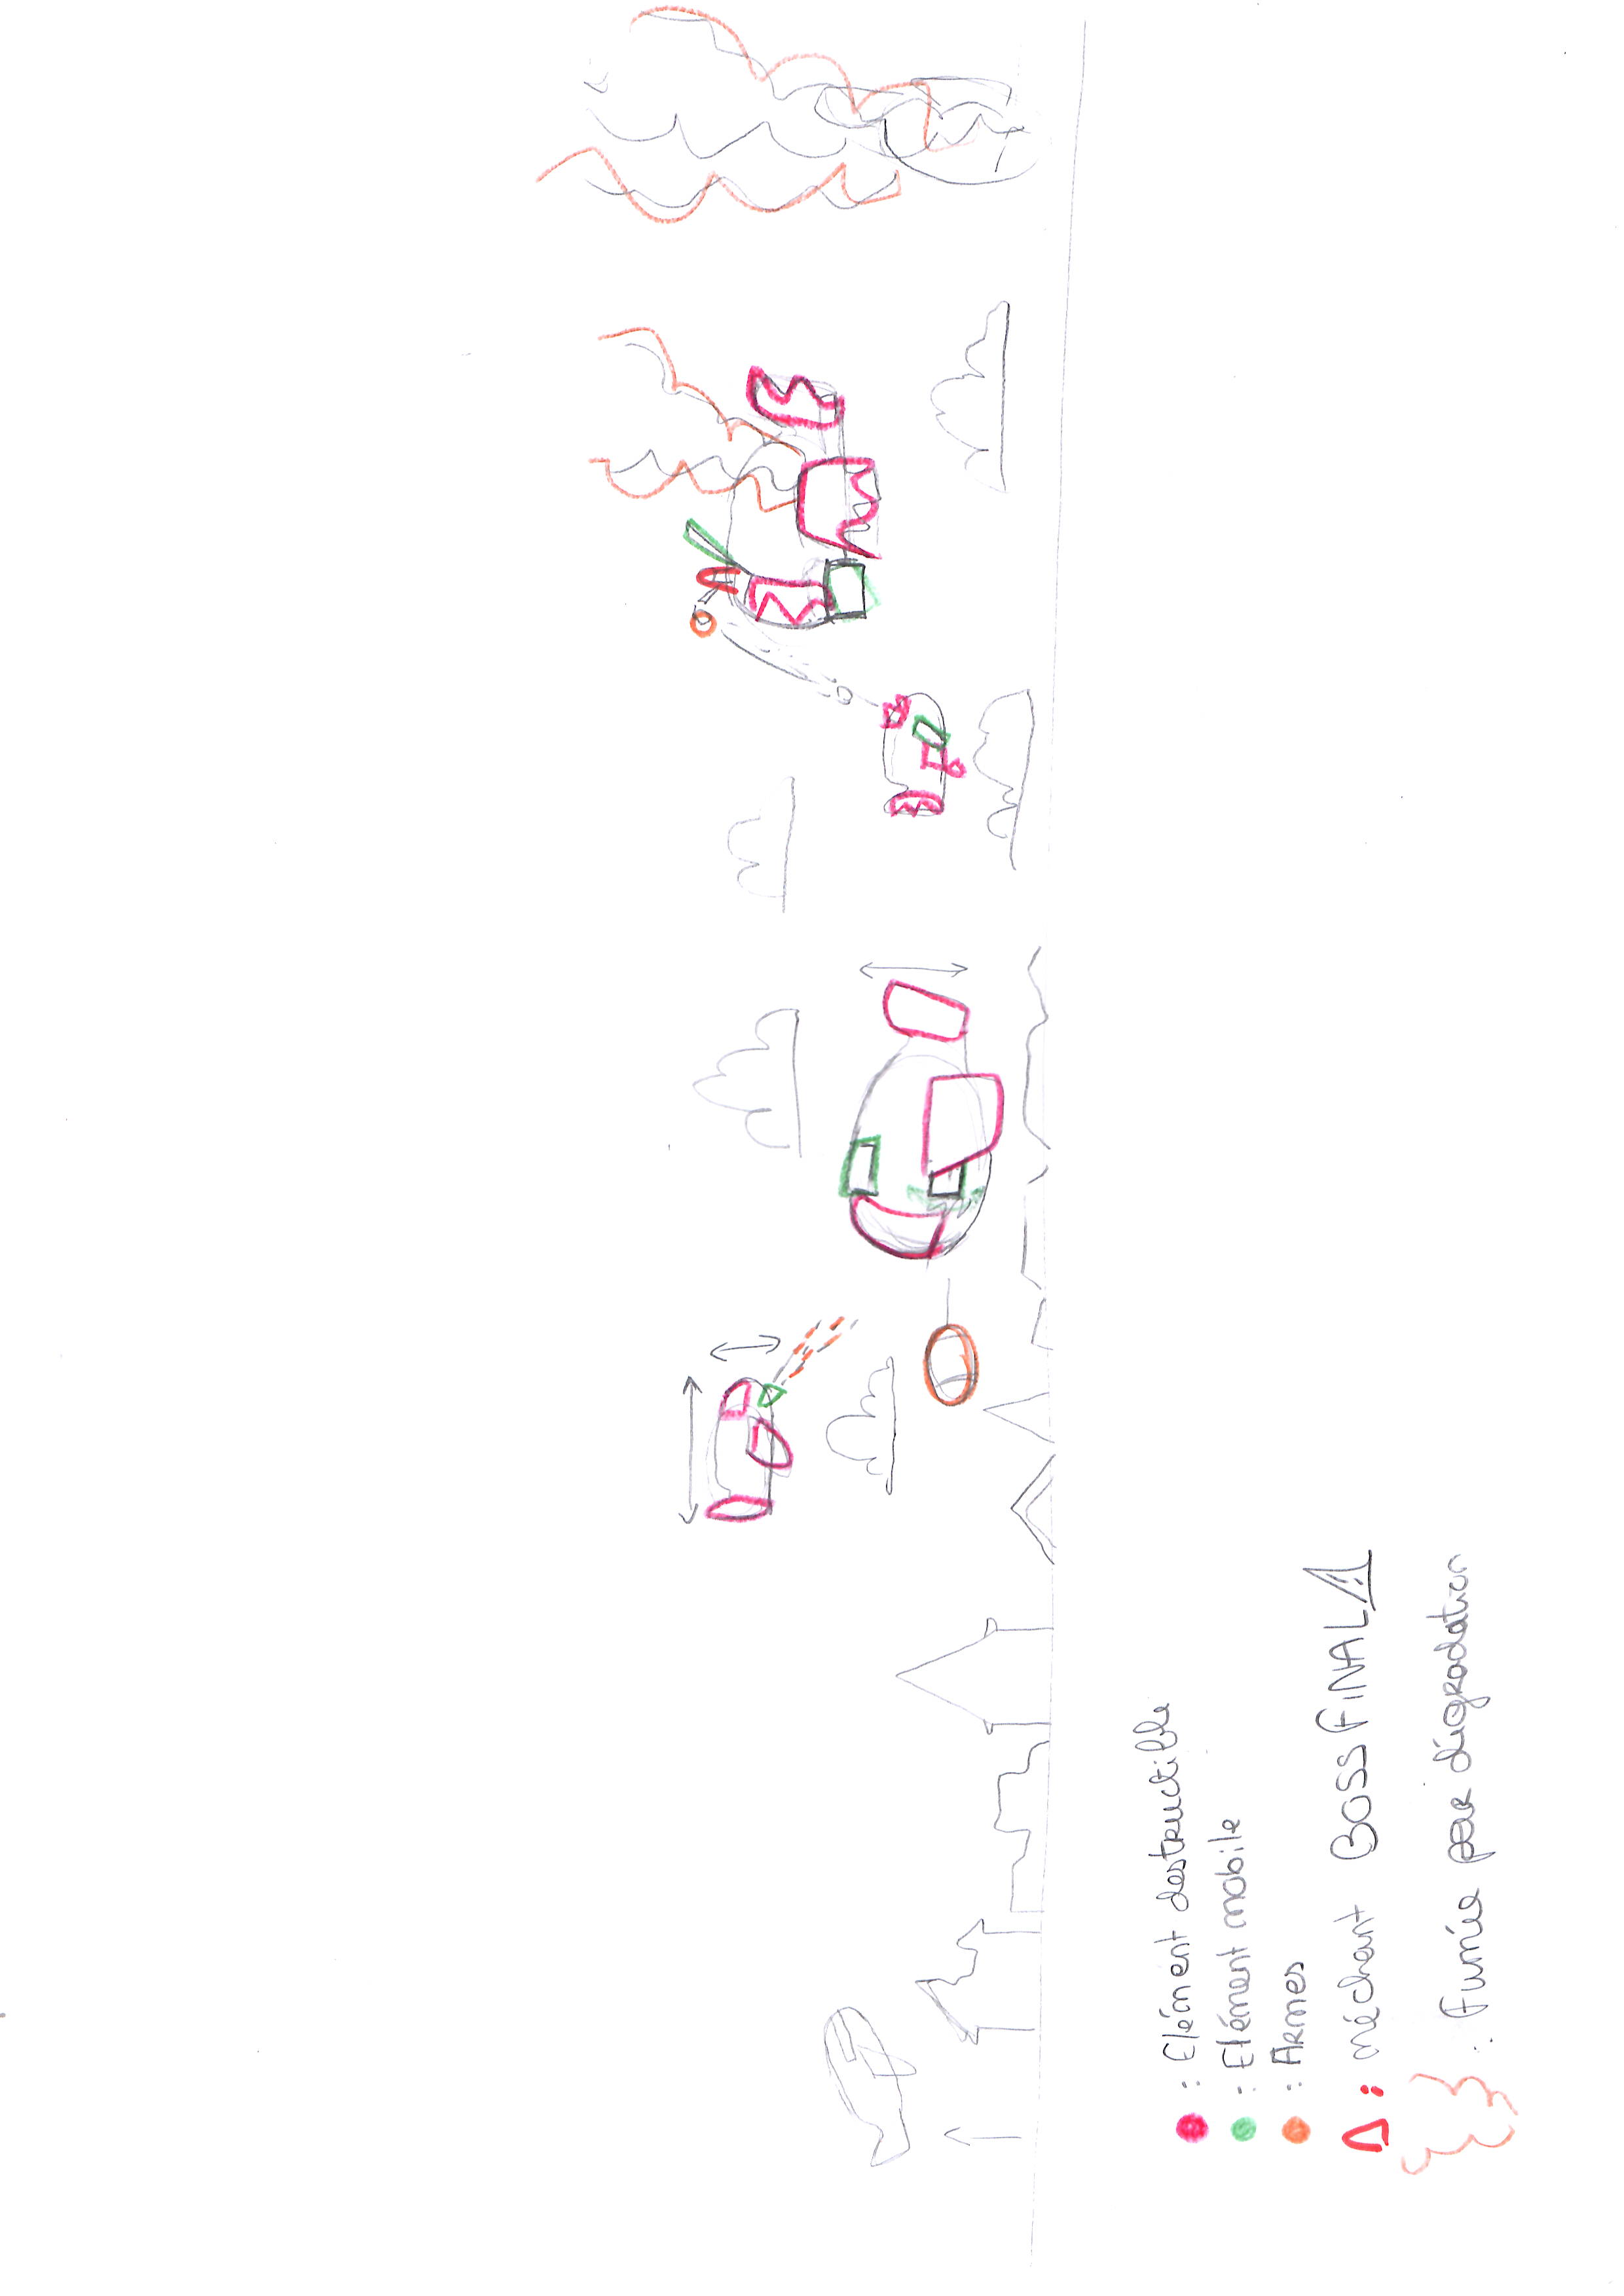 : Elément destructible
: Elément mobile
: Armes
: méchant BOSS FINAL
: Fumée par dégradation